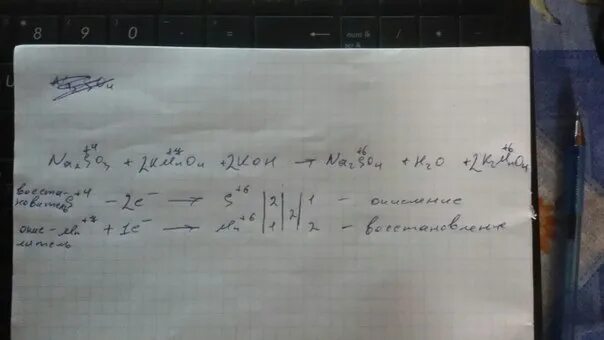 8 9 0 -
+4 +7 +6 +6
Na₂SO₃ + 2KMnO₄ + 2KOH → Na₂SO₄ + H₂O + 2K₂MnO₄
восста-
новитель S⁺⁴ - 2e⁻ → S⁺⁶ | 2 | 2 | 1 - окисление
окис-
литель Mn⁺⁷ + 1e⁻ → Mn⁺⁶ | 1 | 2 - восстановление